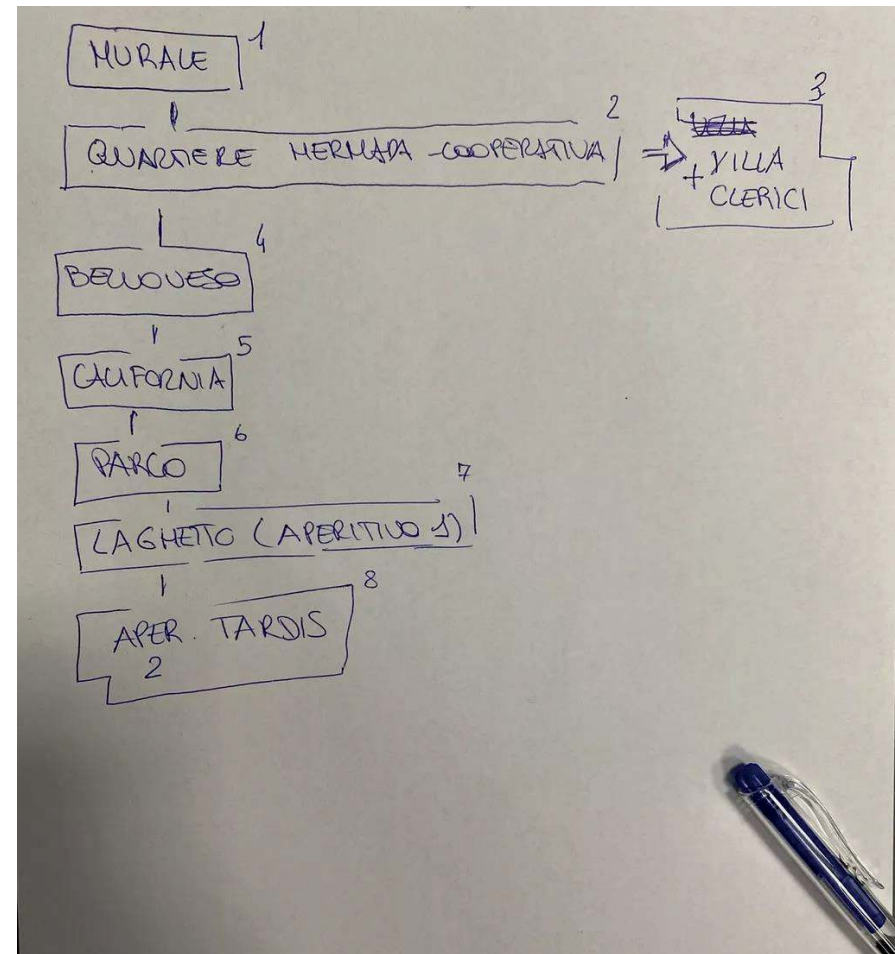 MURALE 1
QUARTIERE HERMADA - COOPERATIVA 2
3
+ VILLA
CLERICI
4
BELLOVESO
5
CALIFORNIA
6
PARCO
7
LAGHETTO (APERITIVO 1)
8
APER. TARDIS
2